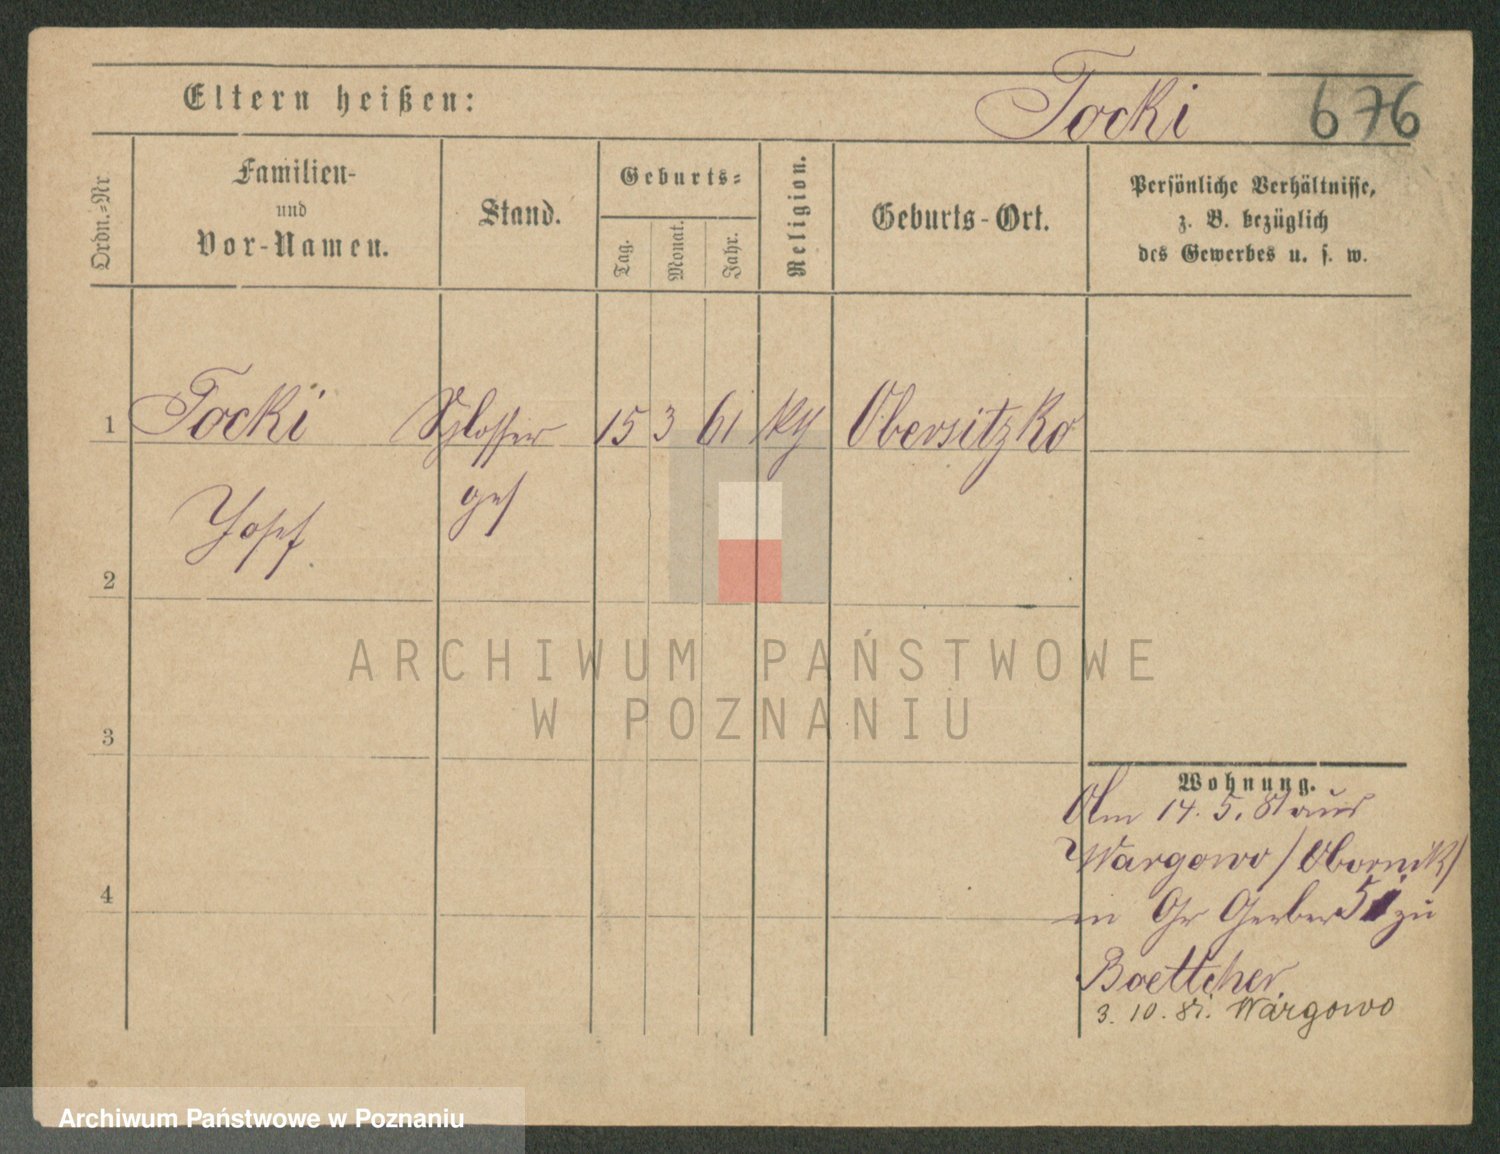 Eltern heißen:
Tocki
676
Ordn.=Nr
Familien-
und
Vor-Namen.
Stand.
Geburts=
Tag.
Monat.
Jahr.
Religion.
Geburts-Ort.
Persönliche Verhältnisse,
z. B. bezüglich
des Gewerbes u. s. w.
1
Tocki Schlosser 15 3 61 Obersitzko
Josef
ges
2
3
4
Wohnung.
14. 5. 81 aus
Wargowo / Obornik /
in Gr Gerber 51 zu
Boettcher.
3. 10. 81. Wargowo
ARCHIWUM PAŃSTWOWE
W POZNANIU
Archiwum Państwowe w Poznaniu